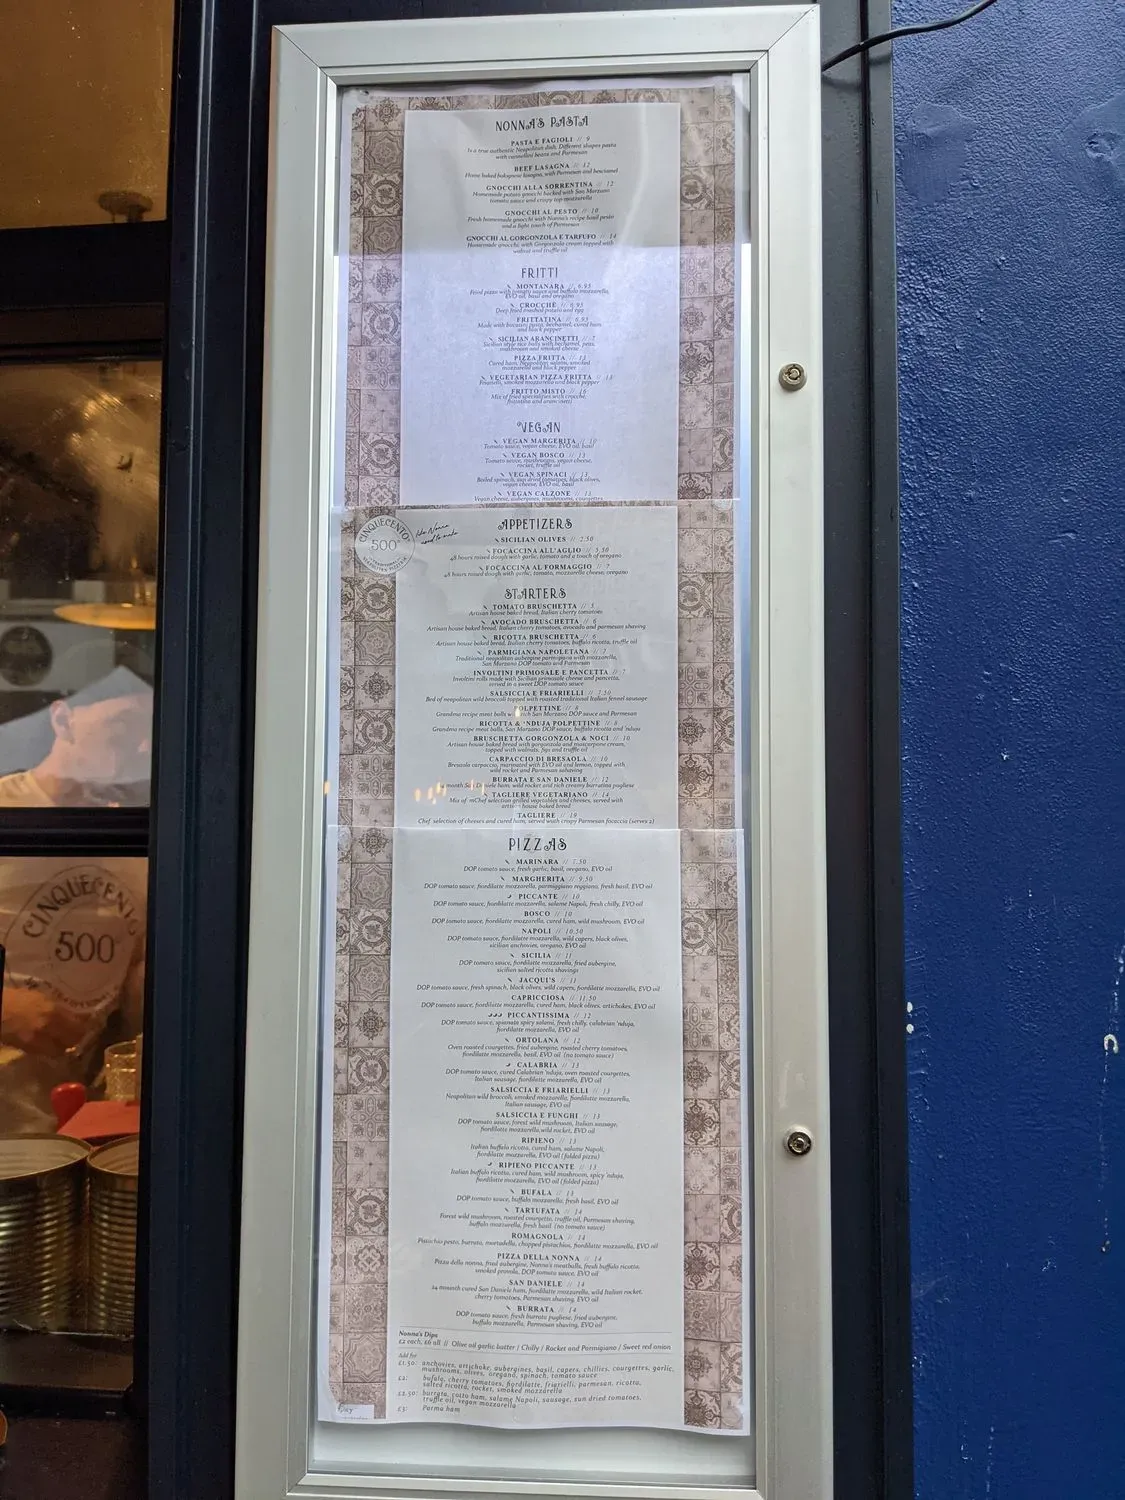 NONNA'S PASTA
PASTA E FAGIOLI // 9
Is a true authentic Neapolitan dish. Different shapes pasta
with cannellini beans and Parmesan
BEEF LASAGNA // 12
Home baked bolognese lasagna, with Parmesan and besciamel
GNOCCHI ALLA SORRENTINA // 12
Homemade potato gnocchi backed with San Marzano
tomato sauce and crispy top mozzarella
GNOCCHI AL PESTO // 10
Fresh homemade gnocchi with Nonna's recipe basil pesto
and a light touch of Parmesan
GNOCCHI AL GORGONZOLA E TARFUFO // 14
Homemade gnocchi with Gorgonzola cream topped with
walnut and truffle oil
FRITTI
MONTANARA // 6.95
Fried pizza with tomato sauce and buffalo mozzarella,
EVO oil, basil and oregano
CROCCHÈ // 6.95
Deep fried mashed potato and egg
FRITTATINA // 6.95
Made with bucatini pasta, bechamel, cured ham
and black pepper
SICILIAN ARANCINETTI // 7
Sicilian style rice balls with bechamel, peas,
mushroom and smoked cheese
PIZZA FRITTA // 13
Cured ham, Neapolitan salami, smoked
mozzarella and black pepper
VEGETARIAN PIZZA FRITTA // 13
Friarielli, smoked mozzarella and black pepper
FRITTO MISTO // 16
Mix of fried specialities with crocche,
frittatina and arancinetti
VEGAN
VEGAN MARGERITA // 10
Tomato sauce, vegan cheese, EVO oil, basil
VEGAN BOSCO // 13
Tomato sauce, mushrooms, vegan cheese,
rocket, truffle oil
VEGAN SPINACI // 13
Boiled spinach, sun dried tomatoes, black olives,
vegan cheese, EVO oil, basil
VEGAN CALZONE // 13
Vegan cheese, aubergines, mushrooms, courgettes
CINQUECENTO
500°
like Nonna
used to make
APPETIZERS
SICILIAN OLIVES // 2.50
FOCACCINA ALL'AGLIO // 5.50
48 hours rised dough with garlic, tomato and a touch of oregano
FOCACCINA AL FORMAGGIO // 7
48 hours rised dough with garlic, tomato, mozzarella cheese, oregano
STARTERS
TOMATO BRUSCHETTA // 5
Artisan house baked bread, Italian cherry tomatoes
AVOCADO BRUSCHETTA // 6
Artisan house baked bread, Italian cherry tomatoes, avocado and parmesan shaving
RICOTTA BRUSCHETTA // 6
Artisan house baked bread, Italian cherry tomatoes, buffalo ricotta, truffle oil
PARMIGIANA NAPOLETANA // 7
Traditional neapolitan aubergine parmigiana with mozzarella,
San Marzano DOP tomato and Parmesan
INVOLTINI PRIMOSALE E PANCETTA // 7
Involtini rolls made with Sicilian primosale cheese and pancetta,
served in a sweet DOP tomato sauce
SALSICCIA E FRIARIELLI // 7.50
Bed of neapolitan wild broccoli topped with roasted traditional Italian fennel sausage
POLPETTINE // 8
Grandma recipe meat balls with rich San Marzano DOP sauce and Parmesan
RICOTTA & 'NDUJA POLPETTINE // 8
Grandma recipe meat balls, San Marzano DOP sauce, buffalo ricotta and 'nduja
BRUSCHETTA GORGONZOLA & NOCI // 10
Artisan house baked bread with gorgonzola and mascarpone cream,
topped with walnuts, figs and truffle oil
CARPACCIO DI BRESAOLA // 10
Bresaola carpaccio, marinated with EVO oil and lemon, topped with
wild rocket and Parmesan sahaving
BURRATA E SAN DANIELE // 12
month San Daniele ham, wild rocket and rich creamy burratina pugliese
TAGLIERE VEGETARIANO // 14
Mix of mChef selection grilled vegetables and cheeses, served with
artisan house baked bread
TAGLIERE // 19
Chef selection of cheeses and cured ham, served with crispy Parmesan focaccia (serves 2)
PIZZAS
MARINARA // 7.50
DOP tomato sauce, fresh garlic, basil, oregano, EVO oil
MARGHERITA // 9.50
DOP tomato sauce, fiordilatte mozzarella, parmiggiano reggiano, fresh basil, EVO oil
PICCANTE // 10
DOP tomato sauce, fiordilatte mozzarella, salame Napoli, fresh chilly, EVO oil
BOSCO // 10
DOP tomato sauce, fiordilatte mozzarella, cured ham, wild mushroom, EVO oil
NAPOLI // 10.50
DOP tomato sauce, fiordilatte mozzarella, wild capers, black olives,
sicilian anchovies, oregano, EVO oil
SICILIA // 11
DOP tomato sauce, fiordilatte mozzarella, fried aubergine,
sicilian salted ricotta shavings
JACQUI'S // 11
DOP tomato sauce, fresh spinach, black olives, wild capers, fiordilatte mozzarella, EVO oil
CAPRICCIOSA // 11.50
DOP tomato sauce, fiordilatte mozzarella, cured ham, black olives, artichokes, EVO oil
PICCANTISSIMA // 12
DOP tomato sauce, spianata spicy salami, fresh chilly, calabrian 'nduja,
fiordilatte mozzarella, EVO oil
ORTOLANA // 12
Oven roasted courgettes, fried aubergine, roasted cherry tomatoes,
fiordilatte mozzarella, basil, EVO oil (no tomato sauce)
CALABRIA // 13
DOP tomato sauce, cured Calabrian 'nduja, oven roasted courgettes,
Italian sausage, fiordilatte mozzarella, EVO oil
SALSICCIA E FRIARIELLI // 13
Neapolitan wild broccoli, smoked mozzarella, fiordilatte mozzarella,
Italian sausage, EVO oil
SALSICCIA E FUNGHI // 13
DOP tomato sauce, forest wild mushroom, Italian sausage,
fiordilatte mozzarella, wild rocket, EVO oil
RIPIENO // 13
Italian buffalo ricotta, cured ham, salame Napoli,
fiordilatte mozzarella, EVO oil (folded pizza)
RIPIENO PICCANTE // 13
Italian buffalo ricotta, cured ham, wild mushroom, spicy 'nduja,
fiordilatte mozzarella, EVO oil (folded pizza)
BUFALA // 13
DOP tomato sauce, buffalo mozzarella, fresh basil, EVO oil
TARTUFATA // 14
Forest wild mushroom, roasted courgette, truffle oil, Parmesan shaving,
buffalo mozzarella, fresh basil (no tomato sauce)
ROMAGNOLA // 14
Pistachio pesto, burrata, mortadella, chopped pistachios, fiordilatte mozzarella, EVO oil
PIZZA DELLA NONNA // 14
Pizza della nonna, fried aubergine, Nonna's meatballs, fresh buffalo ricotta,
smoked provola, DOP tomato sauce, EVO oil
SAN DANIELE // 14
24 mounth cured San Daniele ham, fiordilatte mozzarella, wild Italian rocket,
cherry tomatoes, Parmesan shaving, EVO oil
BURRATA // 14
DOP tomato sauce, fresh burrata pugliese, fried aubergine,
buffalo mozzarella, Parmesan shaving, EVO oil
Nonna's Dips
£2 each, £6 all // Olive oil garlic butter / Chilly / Rocket and Parmigiano / Sweet red onion
Add for
£1.50: anchovies, artichoke, aubergines, basil, capers, chillies, courgettes, garlic,
mushrooms, olives, oregano, spinach, tomato sauce
£2: bufala, cherry tomatoes, fiordilatte, friarielli, parmesan, ricotta,
salted ricotta, rocket, smoked mozzarella
£2.50: burrata, cotto ham, salame Napoli, sausage, sun dried tomatoes,
truffle oil, vegan mozzarella
£3: Parma ham
CINQUECENTO
500°